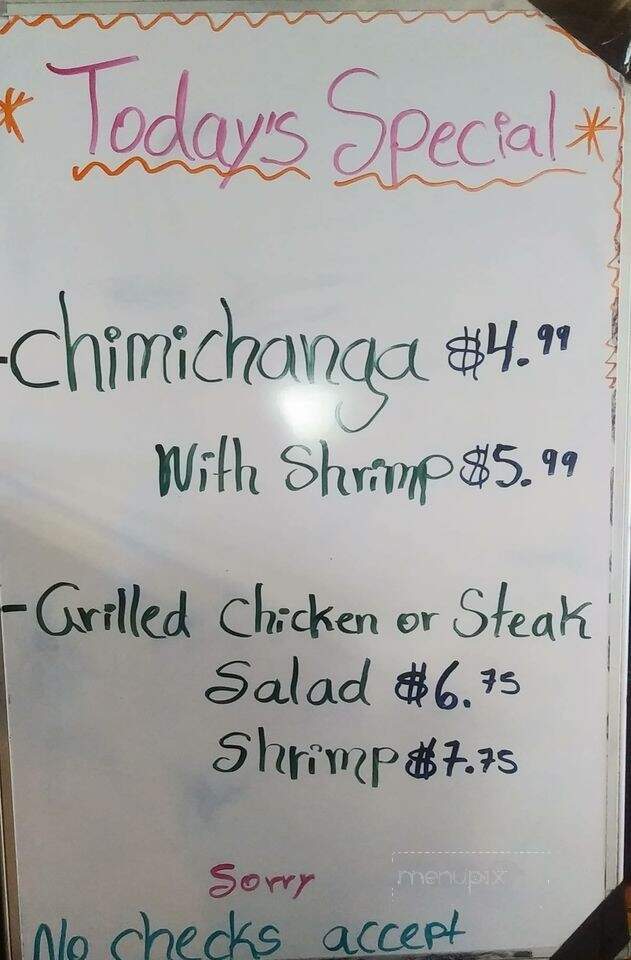 * Today's Special *
- Chimichanga $4.99
With Shrimp $5.99
- Grilled Chicken or Steak
Salad $6.75
Shrimp $7.75
Sorry
menupix
No checks accept